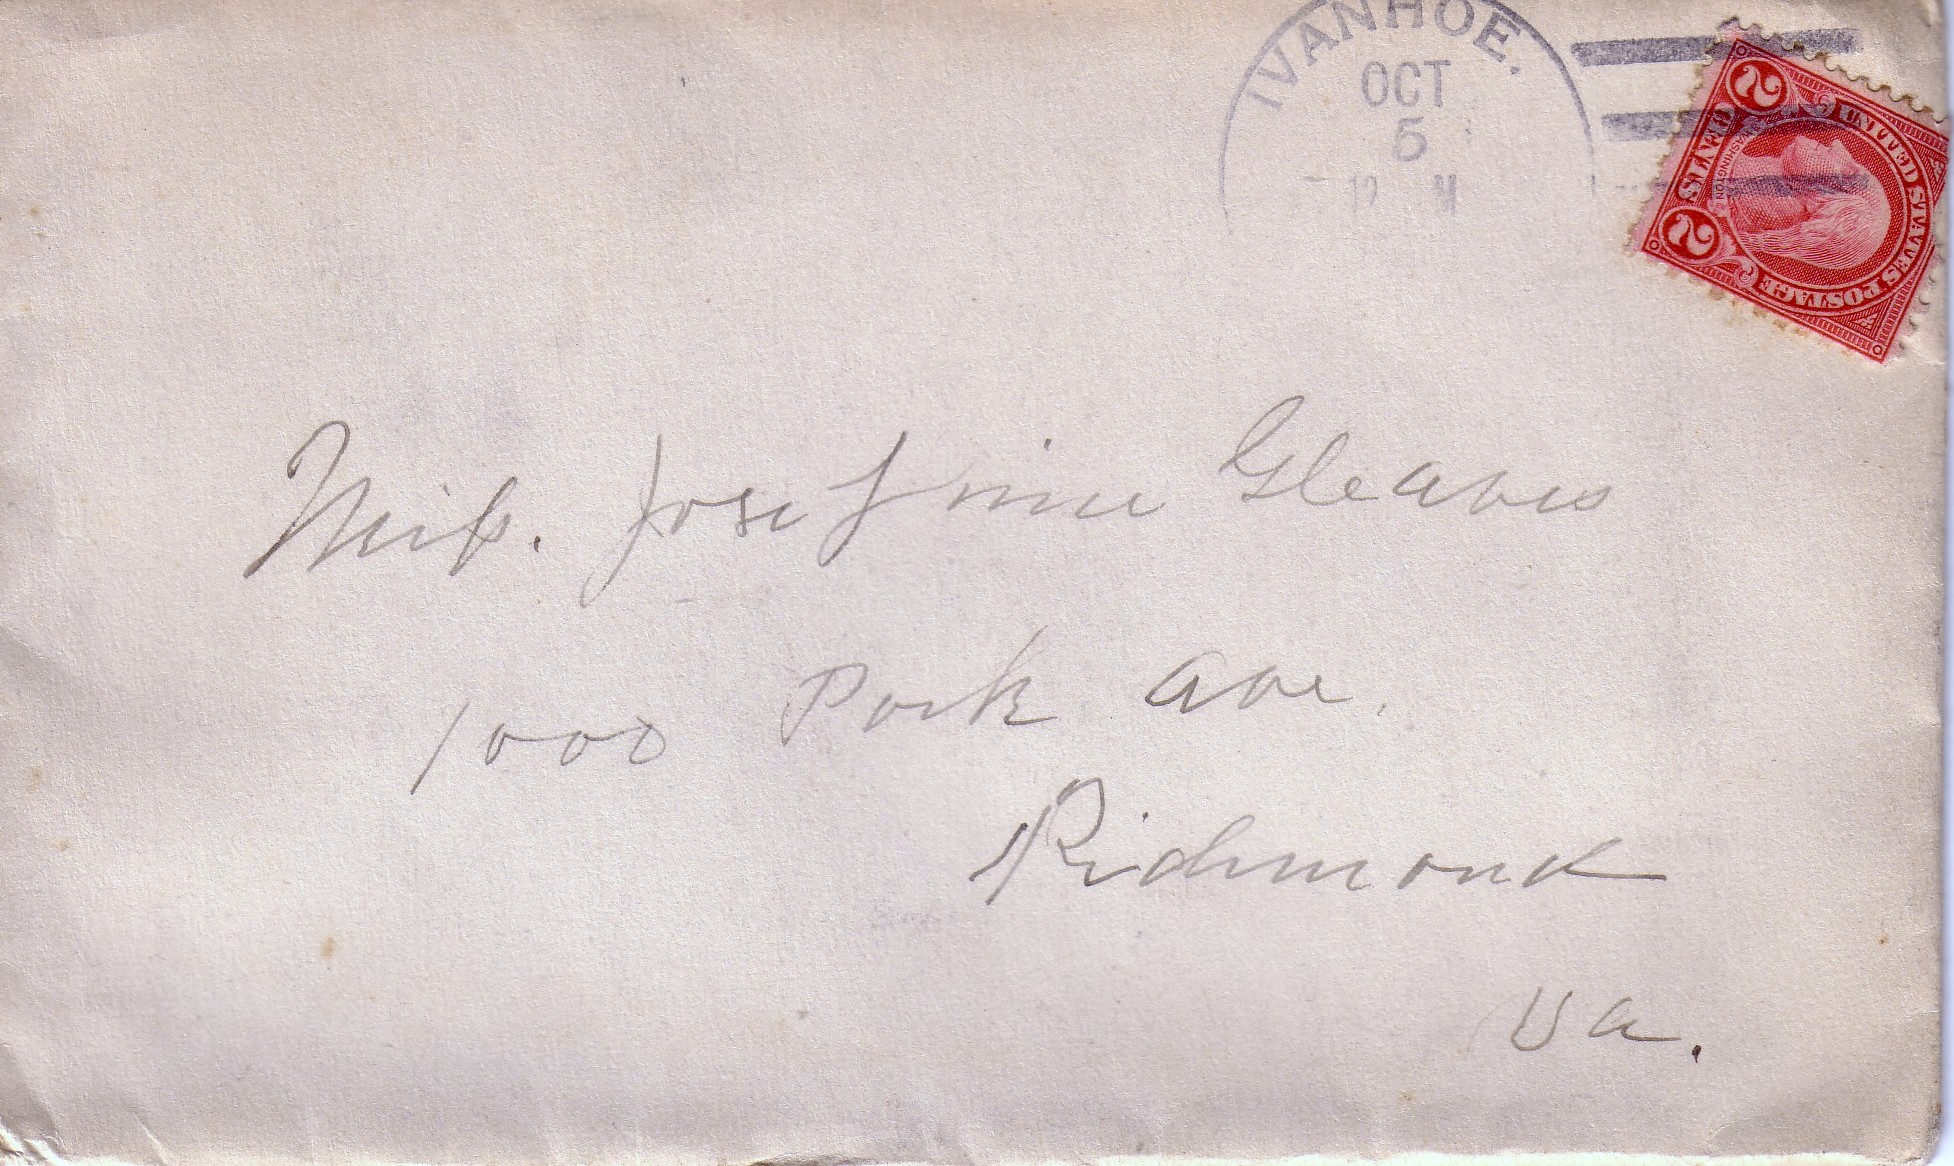 IVANHOE.
OCT
5
UNITED STATES POSTAGE
WASHINGTON
2 CENTS 2
Miss. Josefinine Gleaves
1000 Park Ave.
Richmond
Va.